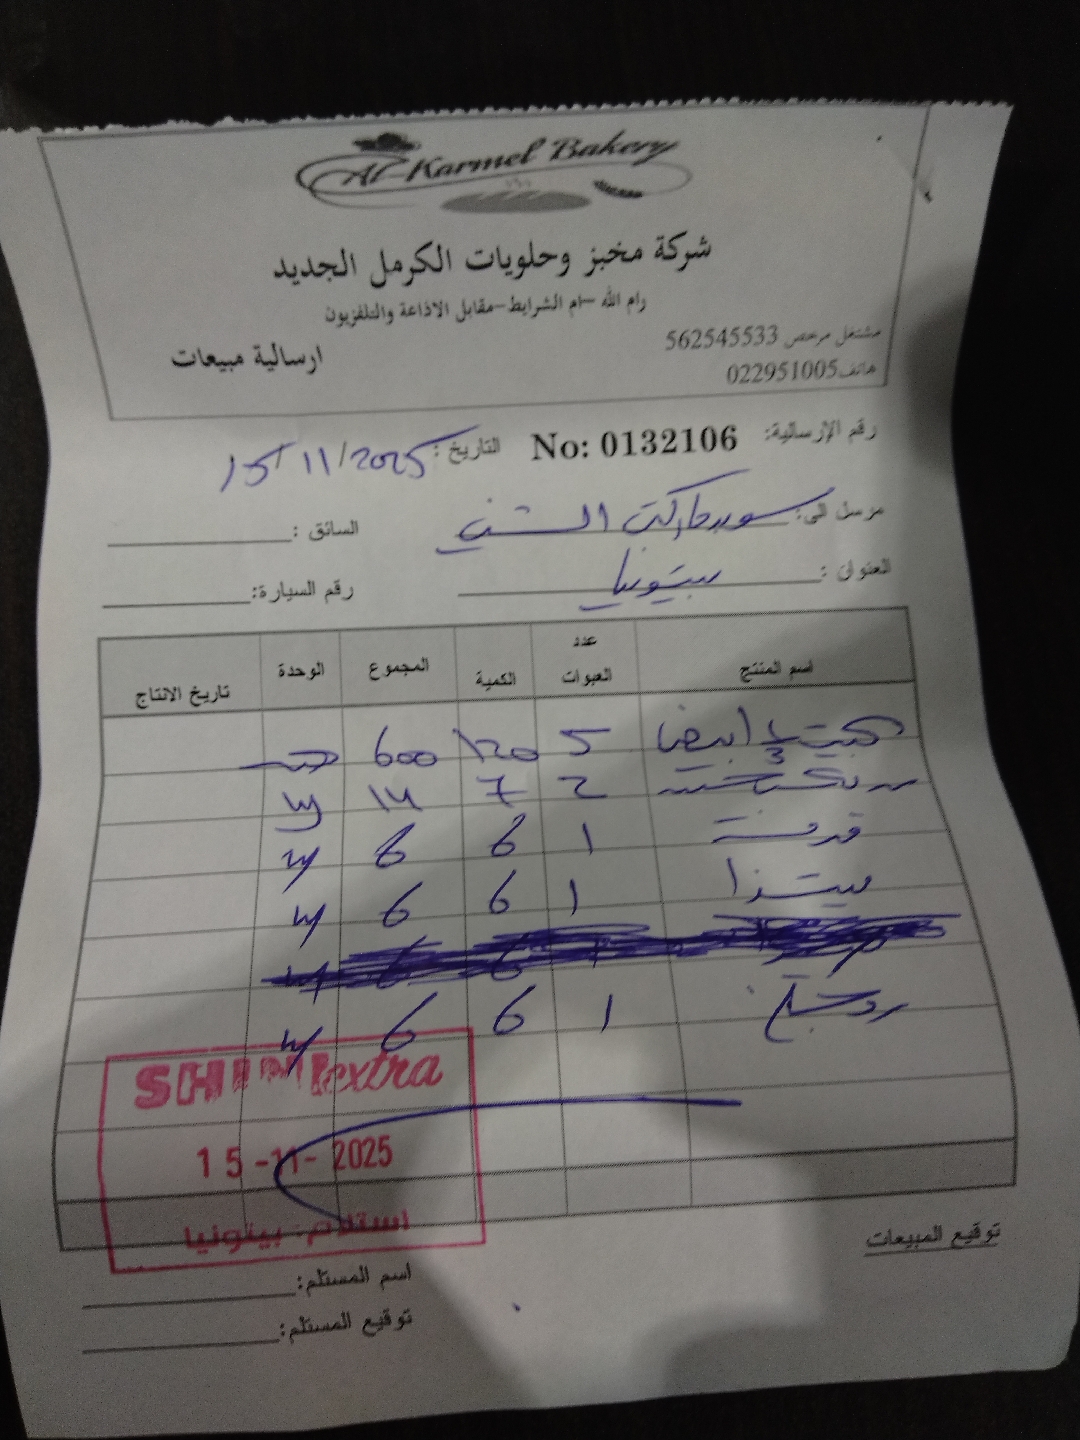 Al-Karmel Bakery
شركة مخبز وحلويات الكرمل الجديد
رام الله -ام الشرايط-مقابل الاذاعة والتلفزيون
مشتغل مرخص 562545533
هاتف022951005
ارسالية مبيعات
رقم الإرسالية: No: 0132106 التاريخ: 15/11/2025
مرسل الى: سوبرماركت الشني السائق:
العنوان: بيتونيا رقم السيارة:
اسم المنتج عدد العبوات الكمية المجموع الوحدة تاريخ الانتاج
1/3 ابيض 5 120 600
2 7 14
1 6 6
بيتزا 1 6 6
1 6 6
SHINI extra
15-11-2025
استلام: بيتونيا
توقيع المبيعات
اسم المستلم:
توقيع المستلم: